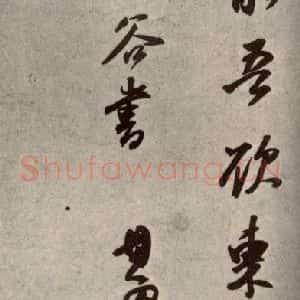 吾欲東
谷書
Shufawang.CN